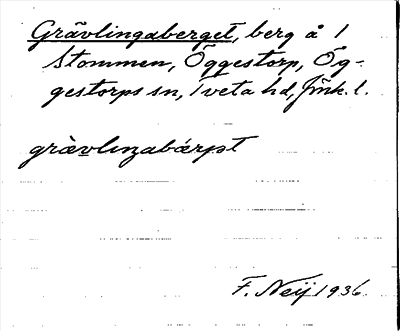 Grävlingaberget, berg å 1
Stommen, Öggestorp, Ög-
gestorps sn, Tveta hd, Jönk. l.
grävliŋabárjət
F. Neij 1936.